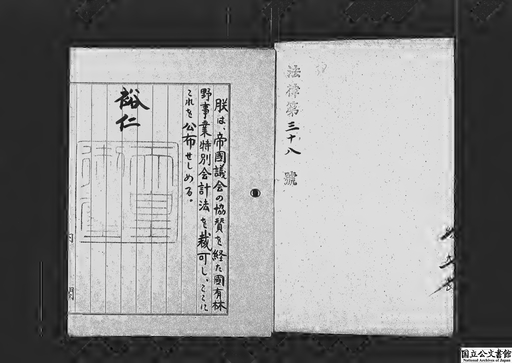 法律第三十八號
朕は、帝國議会の協賛を経た國有林
野事業特別会計法を裁可し、ここに
これを公布せしめる。
裕仁
国立公文書館
National Archives of Japan